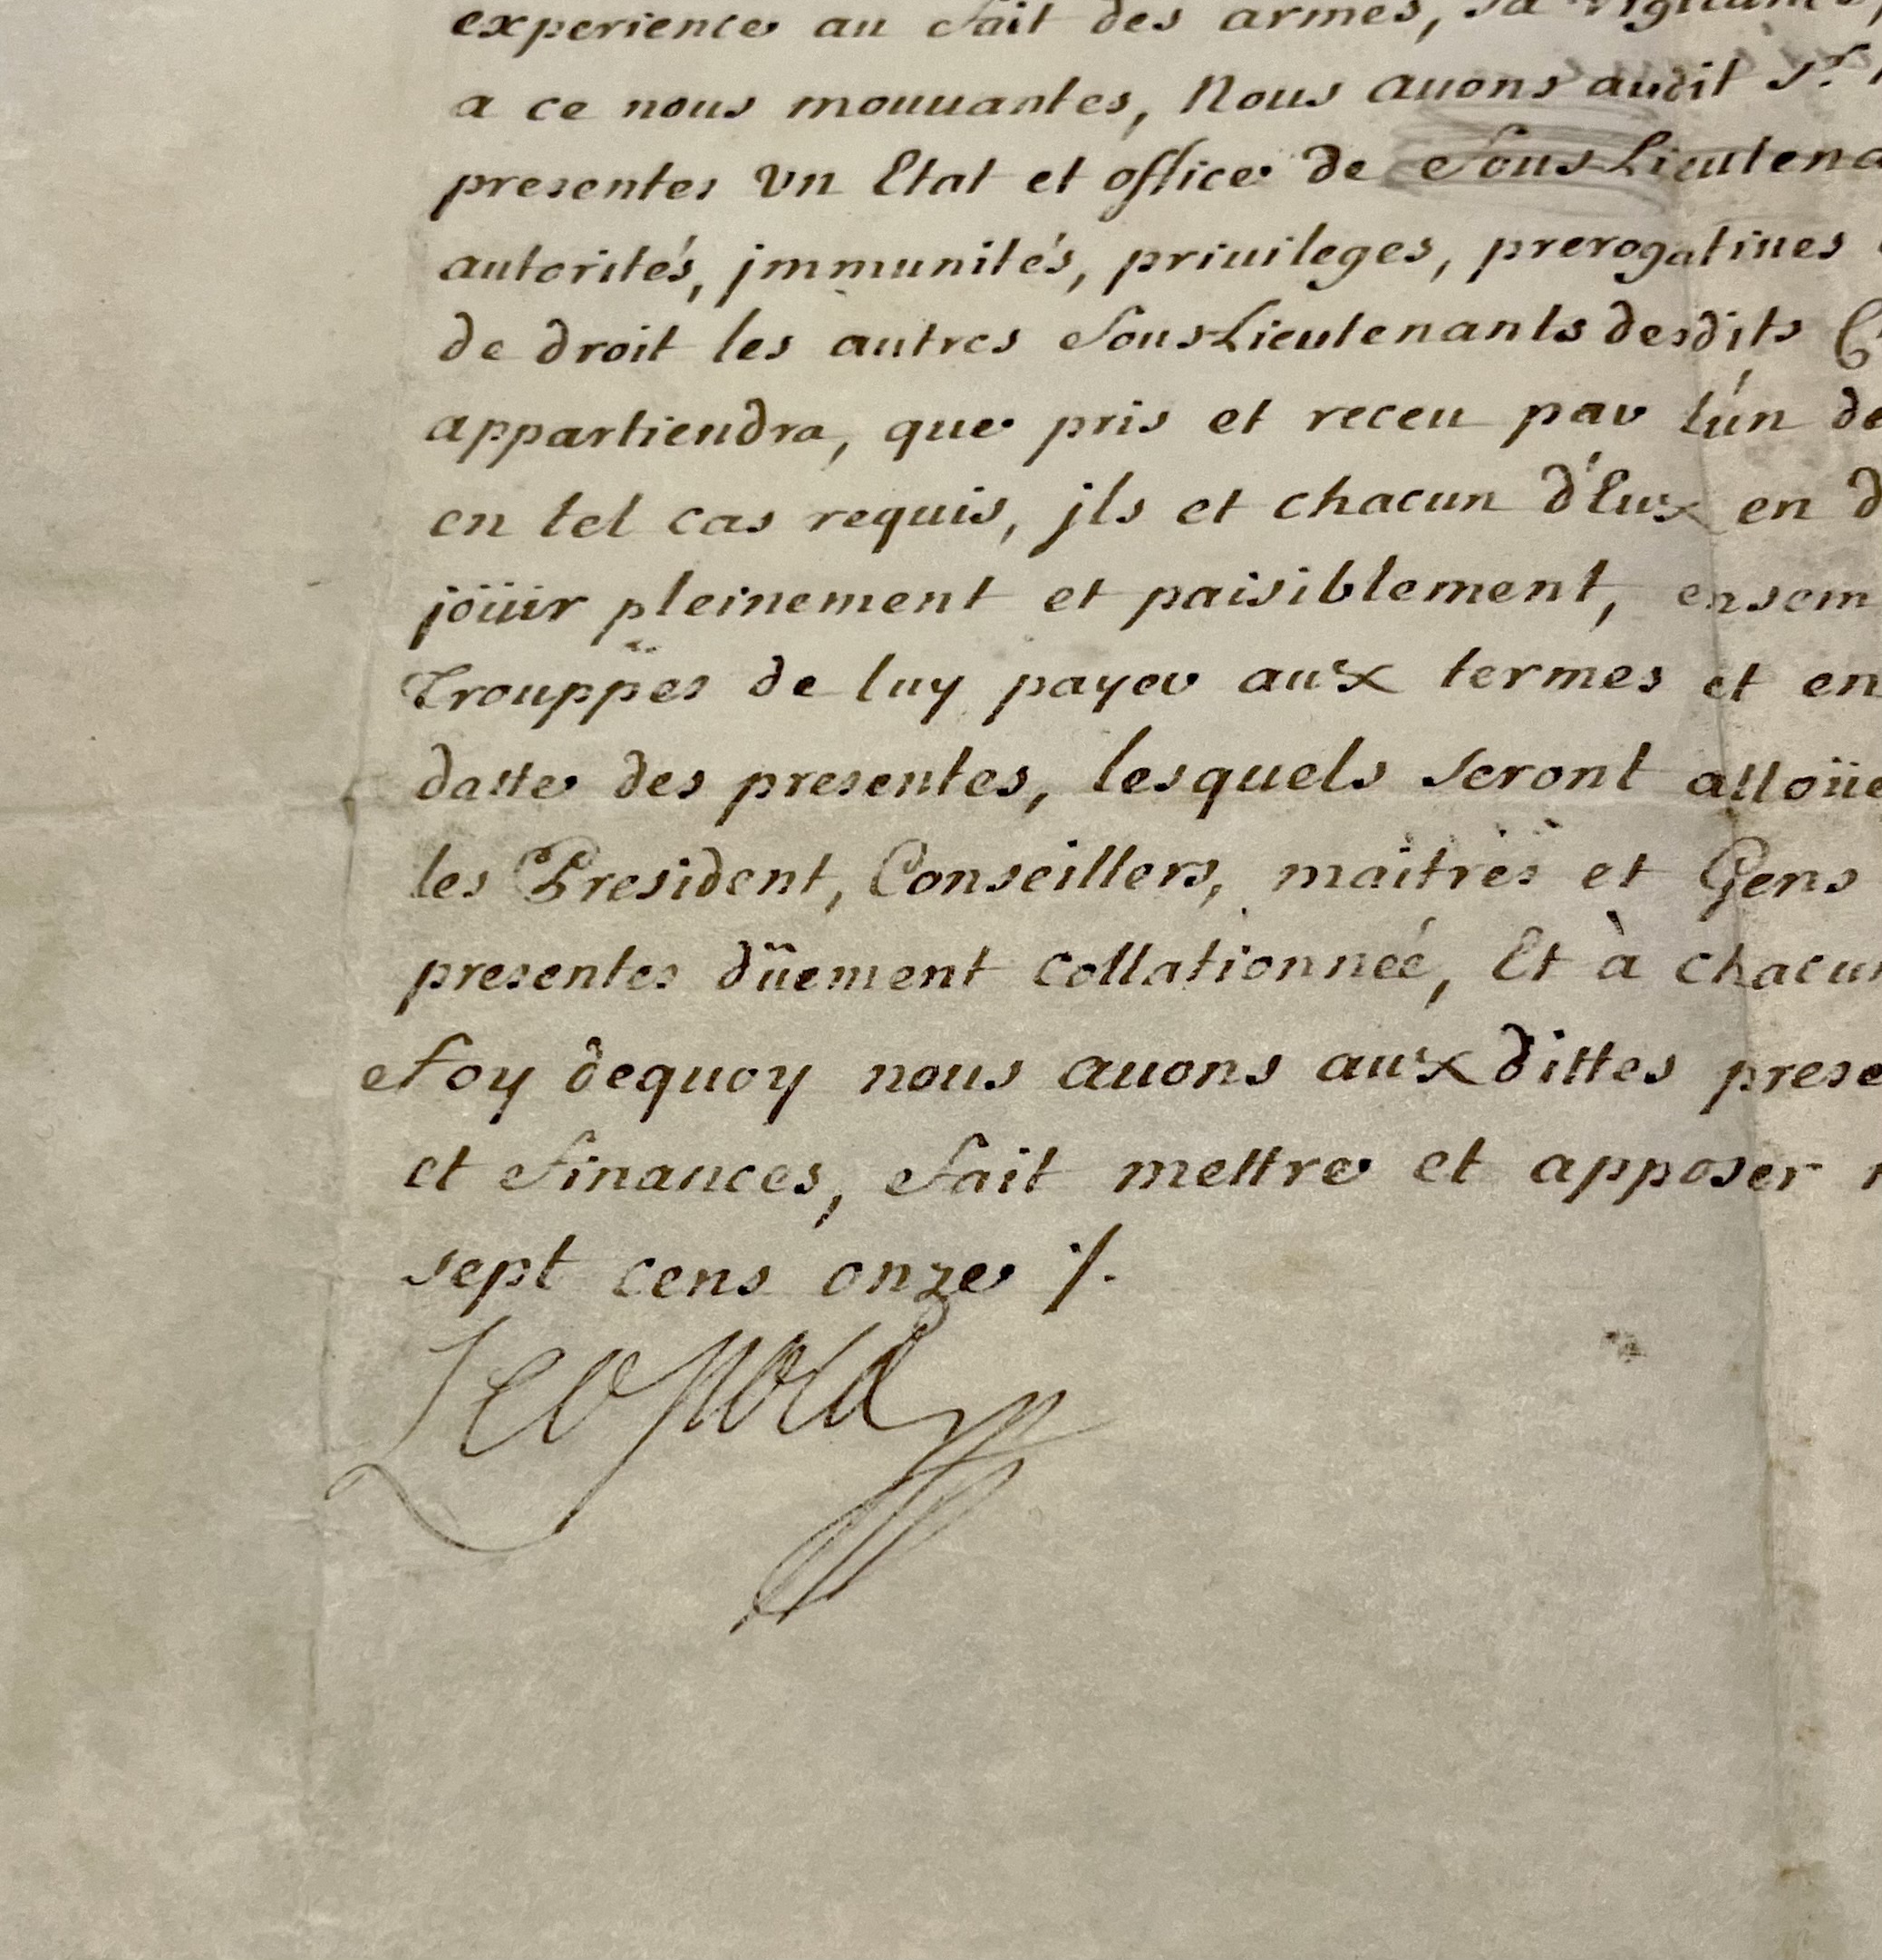 experience au fait des armes, sa vigilance,
a ce nous mouuantes, Nous auons audit Sr.
presentes vn Etat et office de Sous-Lieutena
autorités, jmmunités, priuileges, prerogatiues
de droit les autres Sous-Lieutenants desdits
appartiendra, que pris et receu par l'un de
en tel cas requis, jls et chacun d'Eux en d
joüir pleinement et paisiblement, ensem
Trouppes de luy payer aux termes et en
datte des presentes, lesquels seront alloüe
les President, Conseillers, maitres et Gens
presentes düement collationneé, Et à chacun
Foy dequoy nous auons aux dittes prese
et Finances, fait mettre et apposer
sept cens onze ·/.
Leopold